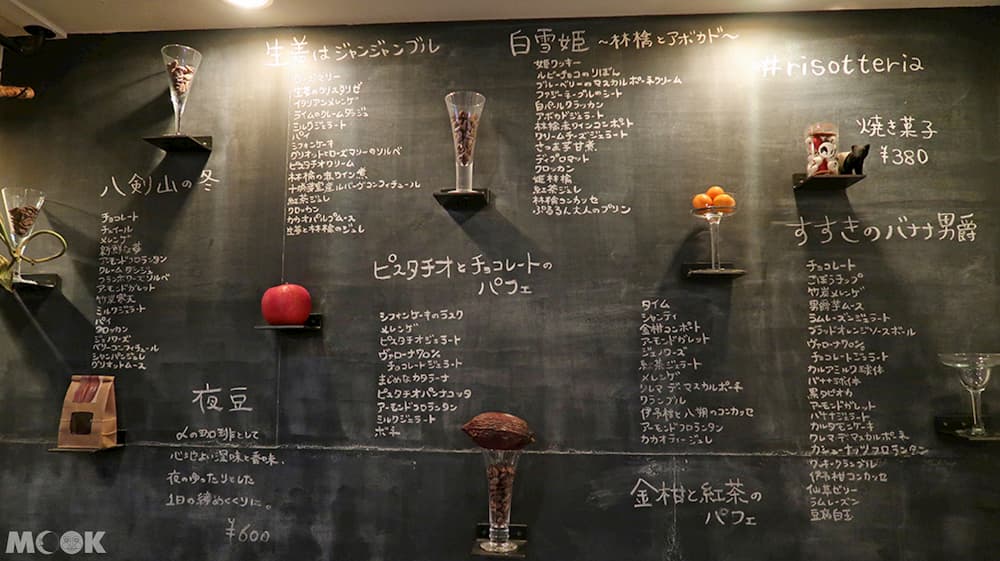 生姜はジャンジャンブル
ローズマリー
生姜のクリスタリゼ
イタリアンメレンゲ
ライムのクレームダンジュ
ミルクジェラート
パイ
シフォンケーキ
グリオットとローズマリーのソルベ
ピスタチオクリーム
林檎の赤ワイン煮
紅茶ジュレ
クロッカン
カカオパルプムース
生姜と林檎のジュレ
白雪姫 ~林檎とアボカド~
姫クッキー
ルビーチョコのりぼん
ブルーベリーのマスカルポーネクリーム
ファジーネーブルのシート
白パールクラッカン
アボカドジェラート
林檎赤ワインコンポート
クリームチーズジェラート
さつま芋甘煮
ディプロマット
クロッカン
姫林檎
紅茶ジュレ
林檎コンカッセ
ぷるるん大人のプリン
#risotteria
焼き菓子
¥380
八剣山の冬
チョコレート
チュイール
メレンゲ
アーモンドフロランタン
クレームダンジュ
フランボワーズソルベ
アーモンドガレット
竹炭寒天
ミルクジェラート
パイ
クロッカン
ジェノワーズ
ベリーコンフィチュール
シャンパンジュレ
グリオットムース
ピスタチオとチョコレートの
パフェ
シフォンケーキのラスク
メレンゲ
ピスタチオジェラート
ヴァローナ70%
チョコレートジェラート
まじめなカタラーナ
ピスタチオパンナコッタ
アーモンドフロランタン
ミルクジェラート
タイム
シャンティ
金柑コンポート
アーモンドガレット
ジェノワーズ
紅茶ジェラート
メレンゲ
クレマ・デ・マスカルポーネ
クランブル
伊予柑と八朔のコンカッセ
アーモンドフロランタン
カカオティージュレ
金柑と紅茶の
パフェ
すすきのバナナ男爵
チョコレート
ごぼうチップ
竹炭メレンゲ
男爵芋ムース
ラムレーズンジェラート
ブラッドオレンジソースボール
ヴァローナ70%
チョコレートジェラート
カルアミルク球体
バナナ球体
黒タピオカ
アーモンドガレット
バナナジェラート
カルダモンケーキ
クレマ・デ・マスカルポーネ
カシューナッツフロランタン
クッキークランブル
伊予柑コンカッセ
仙草ゼリー
ラムレーズン
豆腐白玉
夜豆
〆の珈琲として
心地よい深味と香味、
夜のゆったりとした
1日の締めくくりに。
¥600
MOOK